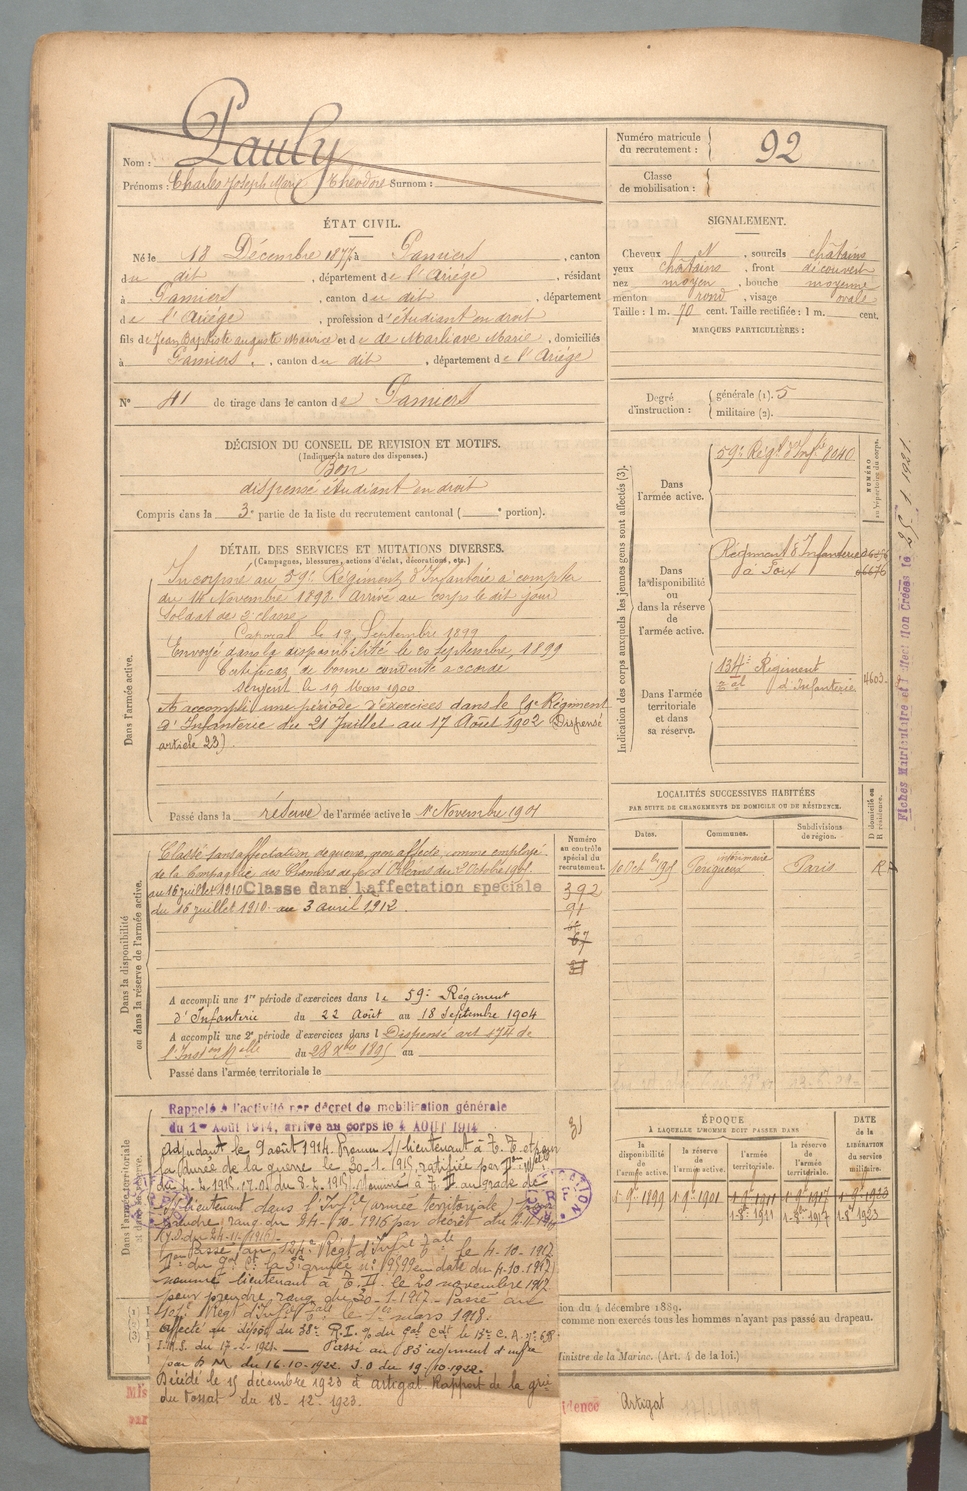 Nom : Pauly
Prénoms : Charles Joseph Marie Théodore Surnom :
Numéro matricule du recrutement : 92
Classe de mobilisation :
ÉTAT CIVIL.
Né le 18 Décembre 1877 à Pamiers, canton
du dit, département de l'Ariège, résidant
à Pamiers, canton du dit, département
de l'Ariège, profession d'étudiant en droit
fils de Jean Baptiste auguste Maurice et de de Marliave Marie, domiciliés
à Pamiers, canton du dit, département de l'Ariège
N° 41 de tirage dans le canton de Pamiers
SIGNALEMENT.
Cheveux et, sourcils châtains
yeux châtains, front découvert
nez moyen, bouche moyenne
menton rond, visage ovale
Taille : 1 m. 70 cent. Taille rectifiée : 1 m. cent.
MARQUES PARTICULIÈRES :
Degré d'instruction : générale (1). 5
militaire (2).
DÉCISION DU CONSEIL DE REVISION ET MOTIFS.
(Indiquer la nature des dispenses.)
Bon
dispensé étudiant en droit
Compris dans la 3e partie de la liste du recrutement cantonal ( e portion).
DÉTAIL DES SERVICES ET MUTATIONS DIVERSES.
(Campagnes, blessures, actions d'éclat, décorations, etc.)
Dans l'armée active.
Incorporé au 59e Régiment d'Infanterie à compter
du 14 Novembre 1898. Arrivé au corps le dit jour
Soldat de 2e classe
Caporal le 19 Septembre 1899
Envoyé dans la disponibilité le 20 septembre 1899
Certificat de bonne conduite accordé
Sergent le 19 Mars 1900
A accompli une période d'exercices dans le Régiment
d'Infanterie du 21 Juillet au 17 Août 1902 (Dispensé
article 23)
Passé dans la réserve de l'armée active le 1er Novembre 1901
Indication des corps auxquels les jeunes gens sont affectés (3).
Dans l'armée active.
59e Régt d'Infie 8040
NUMÉRO au répertoire du corps.
Dans la disponibilité ou dans la réserve de l'armée active.
Régiment d'Infanterie
à Foix
Dans l'armée territoriale et dans sa réserve.
134e Régiment
d'Infanterie 4603
Fiches Matriculaire et Créées le 25.1.1921.
Dans la disponibilité ou dans la réserve de l'armée active.
Classé sans affectation de guerre, non affecté, comme employé
de la Compagnie des Chemins de fer d'Orléans du 2 Octobre
au 16 juillet 1910 Classe dans l'affectation speciale
du 16 juillet 1910 au 3 avril 1912.
Numéro au contrôle spécial du recrutement.
392
91
67
A accompli une 1re période d'exercices dans le 59e Régiment
d'Infanterie du 22 Août au 18 Septembre 1904
A accompli une 2e période d'exercices dans l Dispensé art 174 de
l'Inston Melle du 28 Xbre 1895 au
Passé dans l'armée territoriale le
LOCALITÉS SUCCESSIVES HABITÉES
PAR SUITE DE CHANGEMENTS DE DOMICILE OU DE RÉSIDENCE.
Dates. Communes. Subdivisions de région. D domicile ou R résidence.
10 Oct bre Périgueux Paris R
Dans l'armée territoriale
Rappelé à l'activité par décret de mobilisation générale
du 1er Août 1914, arrive au corps le 4 AOUT 1914
Adjudant le 9 août 1914. Promu S/lieutenant à T.T. et pour
la durée de la guerre le 30-1-1915, ratifiée par
S/lieutenant dans l'Infie (armée territoriale)
prendre rang du 24-10-1916 par décret du
J.O. du 24-11-1916
Passé au 124e Régt d'Infie le 4-10-1917
en date du 4-10-1917
nommé lieutenant à T.T. le 20 novembre 1917
pour prendre rang du 30-1-1917. Passé au
Régt d'Infie le 1er mars 1918.
Affecté au dépôt du 38e R.I.
du 17-2-1921 — Passé au 83 régiment d'infie
par D M du 16-10-1922. J.O du 19-10-1922.
Décédé le 15 décembre 1923 à Artigat Rapport de la gie
du Fossat du 18-12-1923.
ÉPOQUE
À LAQUELLE L'HOMME DOIT PASSER DANS
la disponibilité de l'armée active. la réserve de l'armée active. l'armée territoriale. la réserve de l'armée territoriale.
DATE de la LIBÉRATION du service militaire.
1-9bre 1899 1-9bre 1901 1-9bre 1911 1-9bre 1917 1-9bre 1923
1-8bre 1911 1-8bre 1917 1-8bre 1923
ion du 4 décembre 1889.
comme non exercés tous les hommes n'ayant pas passé au drapeau.
Ministre de la Marine. (Art. 4 de la loi.)
idence Artigat